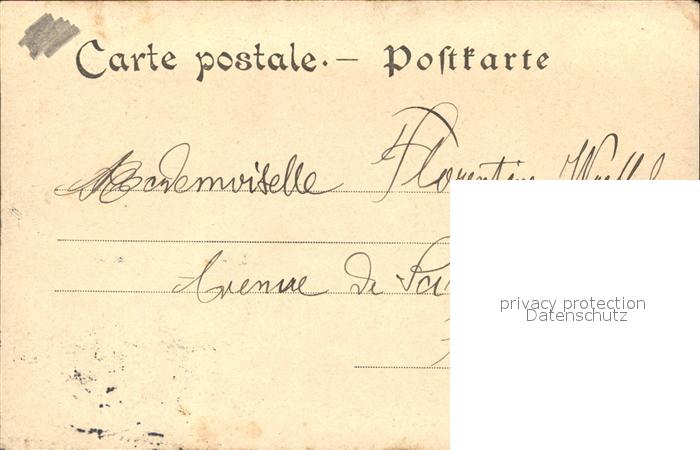 Carte postale. — Postkarte
Mademoiselle Florentine
Avenue de
privacy protection
Datenschutz